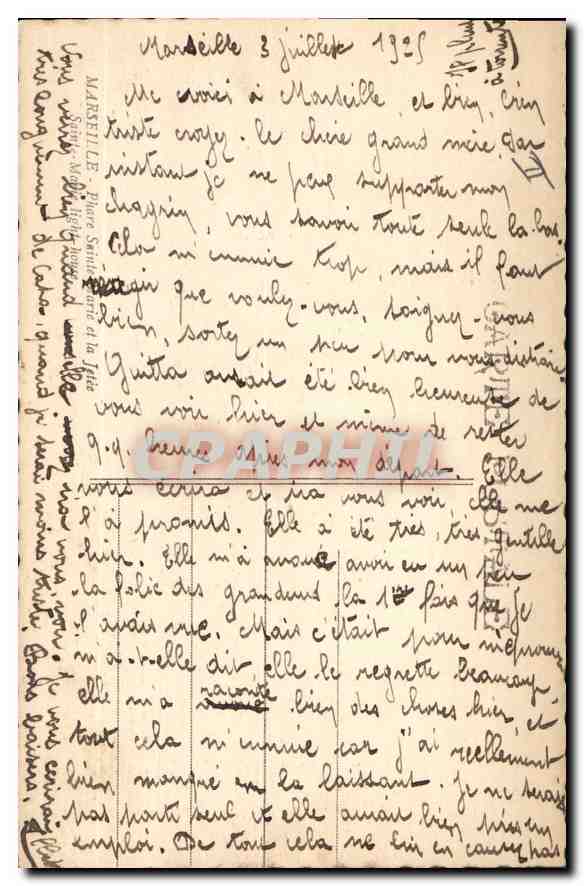 Marseille 3 juillet 1925
Me voici à Marseille et bien, bien
triste croyez-le chère grand mère, par
instant je ne peux supporter mon
chagrin, vous savoir toute seule la-bas.
Cela m'ennuie trop, mais il faut
réagir que voulez-vous, soignez-vous
bien, sortez un peu pour vous distraire
Guitta aurait été bien heureuse de
vous voir hier et même de rester
q.q. heures après mon départ. Elle
vous écrira et ira vous voir, elle me
l'a promis. Elle a été très, très gentille
hier. Elle m'a avoué avoir eu un peu
la folie des grandeurs la 1ère fois que je
l'avais vue. Mais c'était pour m'éprouver
m'a-t-elle dit elle le regrette beaucoup
elle m'a raconté bien des choses hier, et
tout cela m'ennuie car j'ai reellement
bien manqué en la laissant. Je ne serais
pas parti seul et elle aurait bien pris un
emploi. De tout cela ne lui en causez pas
Vous verrez bien quand elle ira vous voir. Je vous écrirai
très longuement de Casa, quand je serai moins triste. Bons baisers.
MARSEILLE - Phare Sainte-Marie et la Jetée
Sainte-Mary lighthouse
CARTE POSTALE
CPAPHIL
II